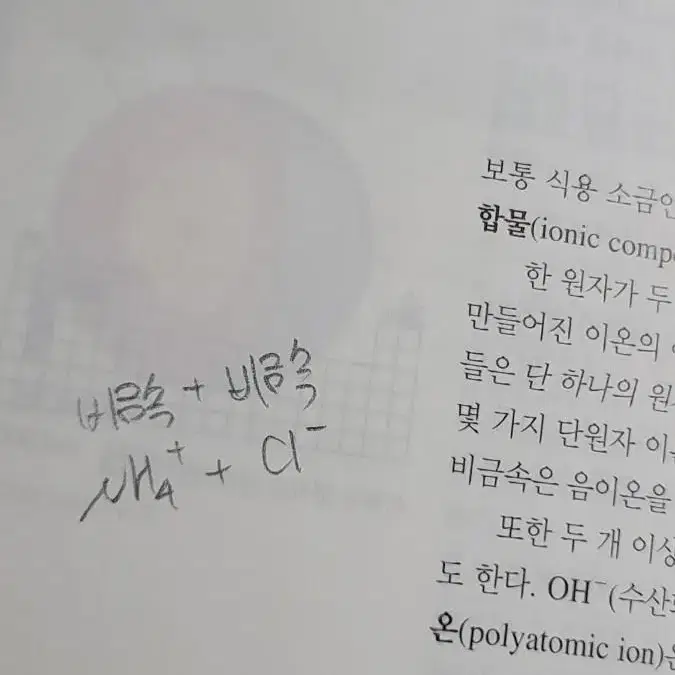 비금속 + 비금속
NH₄⁺ + Cl⁻
보통 식용 소금인
합물(ionic comp
한 원자가 두
만들어진 이온의
들은 단 하나의 원
몇 가지 단원자 이
비금속은 음이온을
또한 두 개 이상
도 한다. OH⁻(수산화
온(polyatomic ion)은